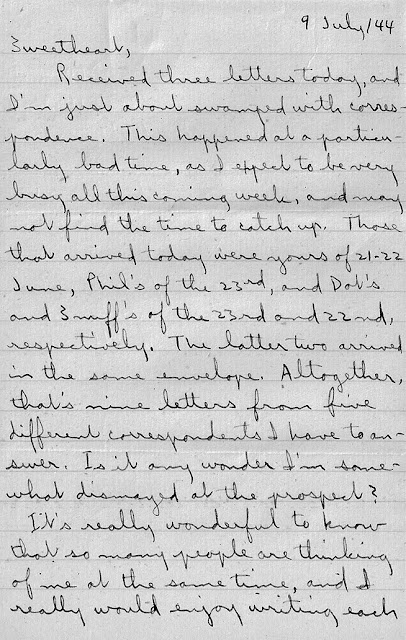 9 July/44
Sweetheart,
Received three letters today, and
I'm just about swamped with corres-
pondence. This happened at a particu-
larly bad time, as I expect to be very
busy all this coming week, and may
not find the time to catch up. Those
that arrived today were yours of 21-22
June, Phil's of the 23rd, and Dot's
and Snuff's of the 23rd and 22nd,
respectively. The latter two arrived
in the same envelope. Altogether,
that's nine letters from five
different correspondents I have to an-
swer. Is it any wonder I'm some-
what dismayed at the prospect?
It's really wonderful to know
that so many people are thinking
of me at the same time, and I
really would enjoy writing each